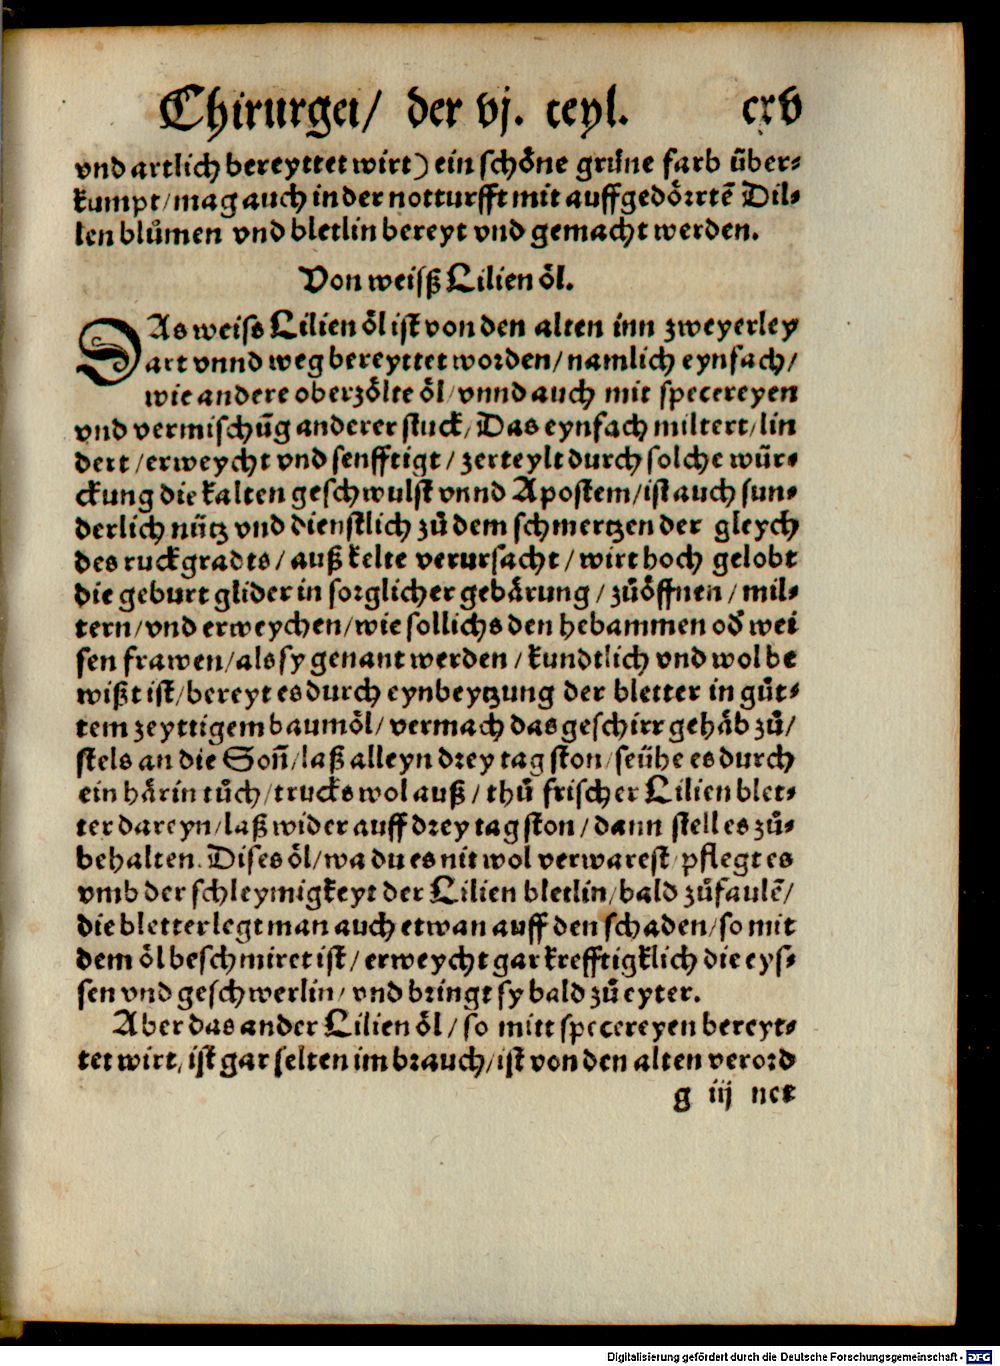 Chirurgei/ der vj. teyl. cxv
vnd artlich bereyttet wirt) ein schöne grůne farb über-
kumpt/mag auch in der notturfft mit auffgedörrtē Dil-
len blůmen vnd bletlin bereyt vnd gemacht werden.
Von weisß Lilien öl.
DAs weiss Lilien öl ist von den alten inn zweyerley
art vnnd weg bereyttet worden/namlich eynfach/
wie andere oberzölte öl/vnnd auch mit specereyen
vnd vermischūg anderer stuck/Das eynfach miltert/lin
dert/erweycht vnd senfftigt/zerteylt durch solche wür-
ckung die kalten geschwulst vnnd Apostem/ist auch sun-
derlich nütz vnd dienstlich zů dem schmertzen der gleych
des ruckgradts/auß kelte verursacht/wirt hoch gelobt
die geburt glider in sorglicher gebärung/zůöffnen/mil-
tern/vnd erweychen/wie sollichs den hebammen od̕ wei
sen frawen/als sy genant werden/kundtlich vnd wol be
wißt ist/bereyt es durch eynbeytzung der bletter in gůt-
tem zeyttigem baumöl/vermach das geschirr gehäb zů/
stels an die Soñ/laß alleyn drey tag ston/seühe es durch
ein härin tůch/trucks wol auß/thů frischer Lilien blet-
ter dareyn/laß wider auff drey tag ston/dann stell es zů-
behalten. Dises öl/wa du es nit wol verwarest/pflegt es
vmb der schleymigkeyt der Lilien bletlin/bald zůfaulē/
die bletter legt man auch etwan auff den schaden/so mit
dem öl beschmiret ist/erweycht gar krefftigklich die eys-
sen vnd geschwerlin/vnd bringt sy bald zů eyter.
Aber das ander Lilien öl/so mitt specereyen bereyt-
tet wirt/ist gar selten im brauch/ist von den alten verord
g iij net
Digitalisierung gefördert durch die Deutsche Forschungsgemeinschaft - DFG